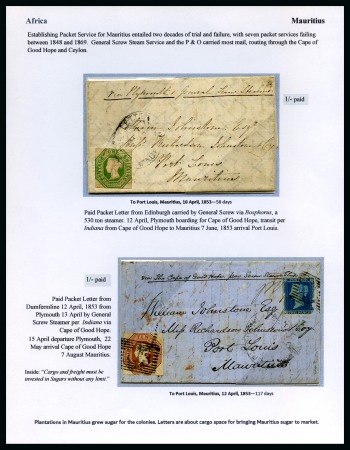 Africa
Mauritius
Establishing Packet Service for Mauritius entailed two decades of trial and failure, with seven packet services failing
between 1848 and 1869. General Screw Steam Service and the P & O carried most mail, routing through the Cape of
Good Hope and Ceylon.
1/- paid
via Plymouth & general Screw Steamer
William Johnstone Esq
Port Louis
Mauritius
To Port Louis, Mauritius, 10 April, 1853—58 days
Paid Packet Letter from Edinburgh carried by General Screw via Bosphorus, a
530 ton steamer. 12 April, Plymouth boarding for Cape of Good Hope, transit per
Indiana from Cape of Good Hope to Mauritius 7 June, 1853 arrival Port Louis.
1/- paid
Paid Packet Letter from
Dumfermline 12 April, 1853 from
Plymouth 13 April by General
Screw Steamer per Indiana via
Cape of Good Hope.
15 April departure Plymouth, 22
May arrival Cape of Good Hope
7 August Mauritius.
Inside: "Cargo and freight must be
invested in Sugars without any limit."
via The Cape of Good Hope per Screw Steamer
William Johnstone Esq
Messrs Richardson Johnstone & Coy
Port Louis
Mauritius
To Port Louis, Mauritius, 12 April, 1853—117 days
Plantations in Mauritius grew sugar for the colonies. Letters are about cargo space for bringing Mauritius sugar to market.